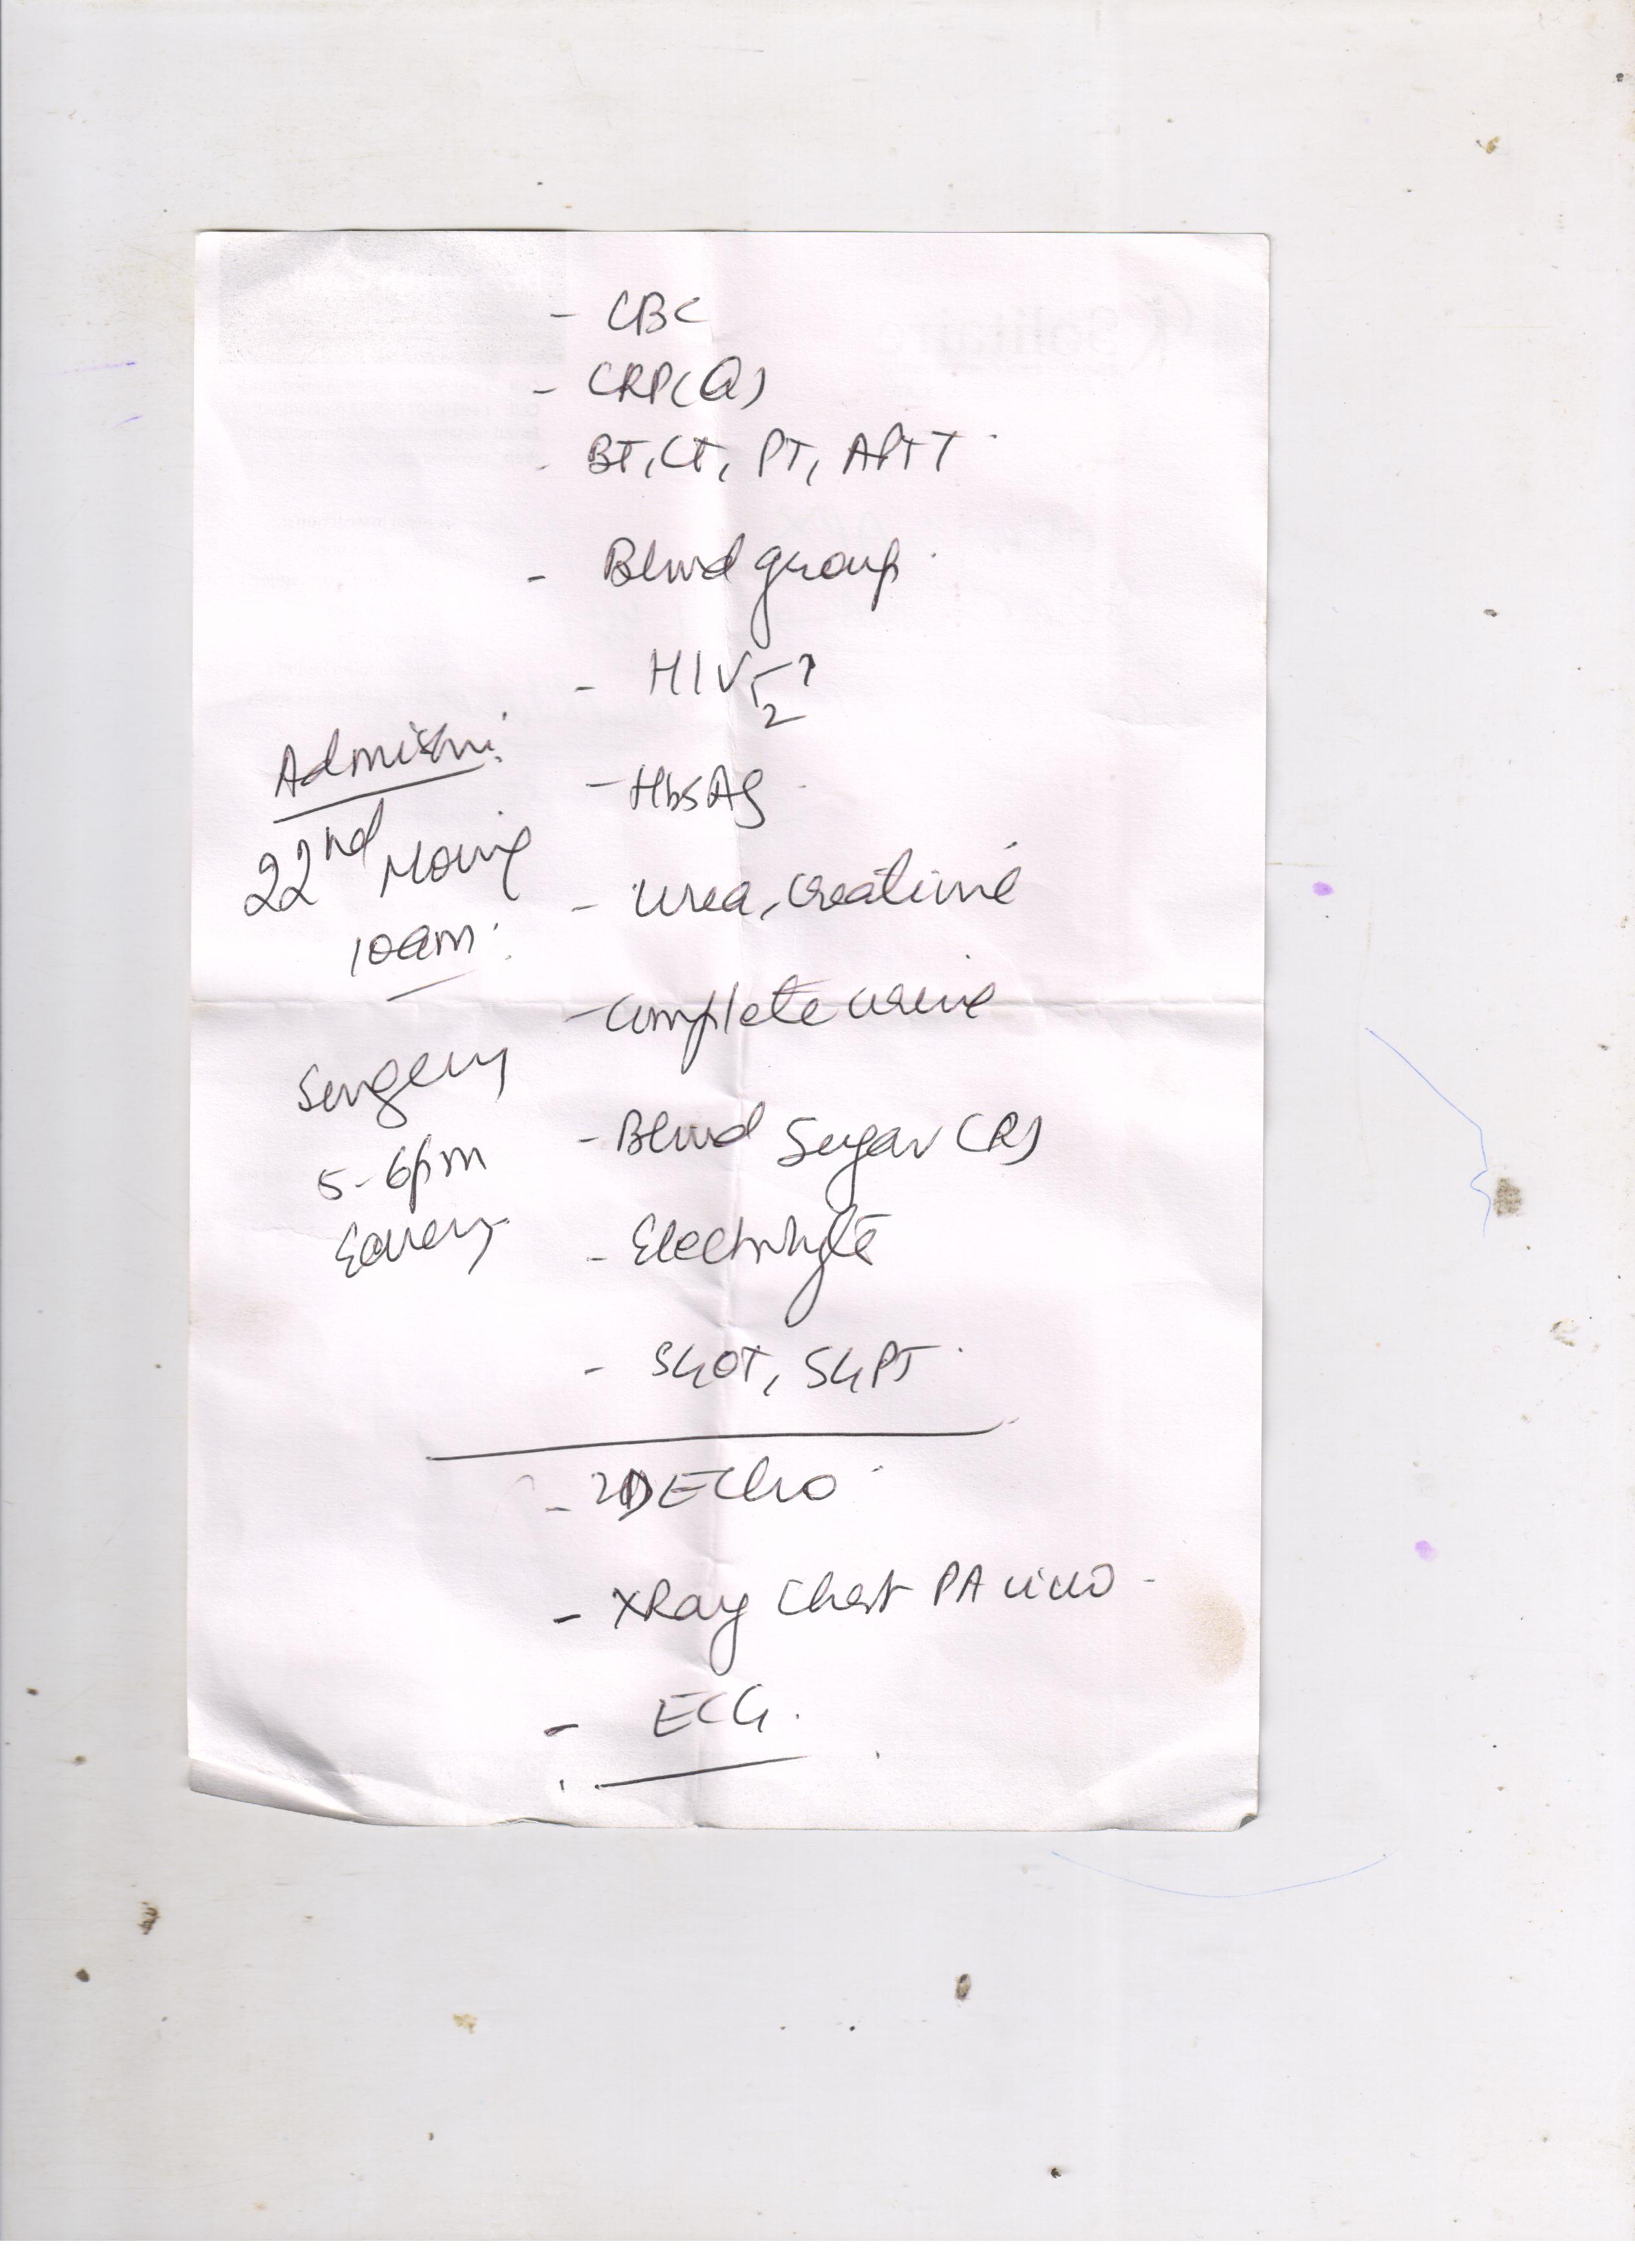 - CBC
- CRP(Q)
- BT, CT, PT, APTT
- Blood group
- HIV 1 2
- HbsAg
- Urea, Creatinine
- Complete urine
- Blood Sugar (R)
- Electrolyte
- SGOT, SGPT
- 2D ECho
- XRay Chest PA view
- ECG.
Admission:
22nd Morning
10am
Surgery
5-6pm